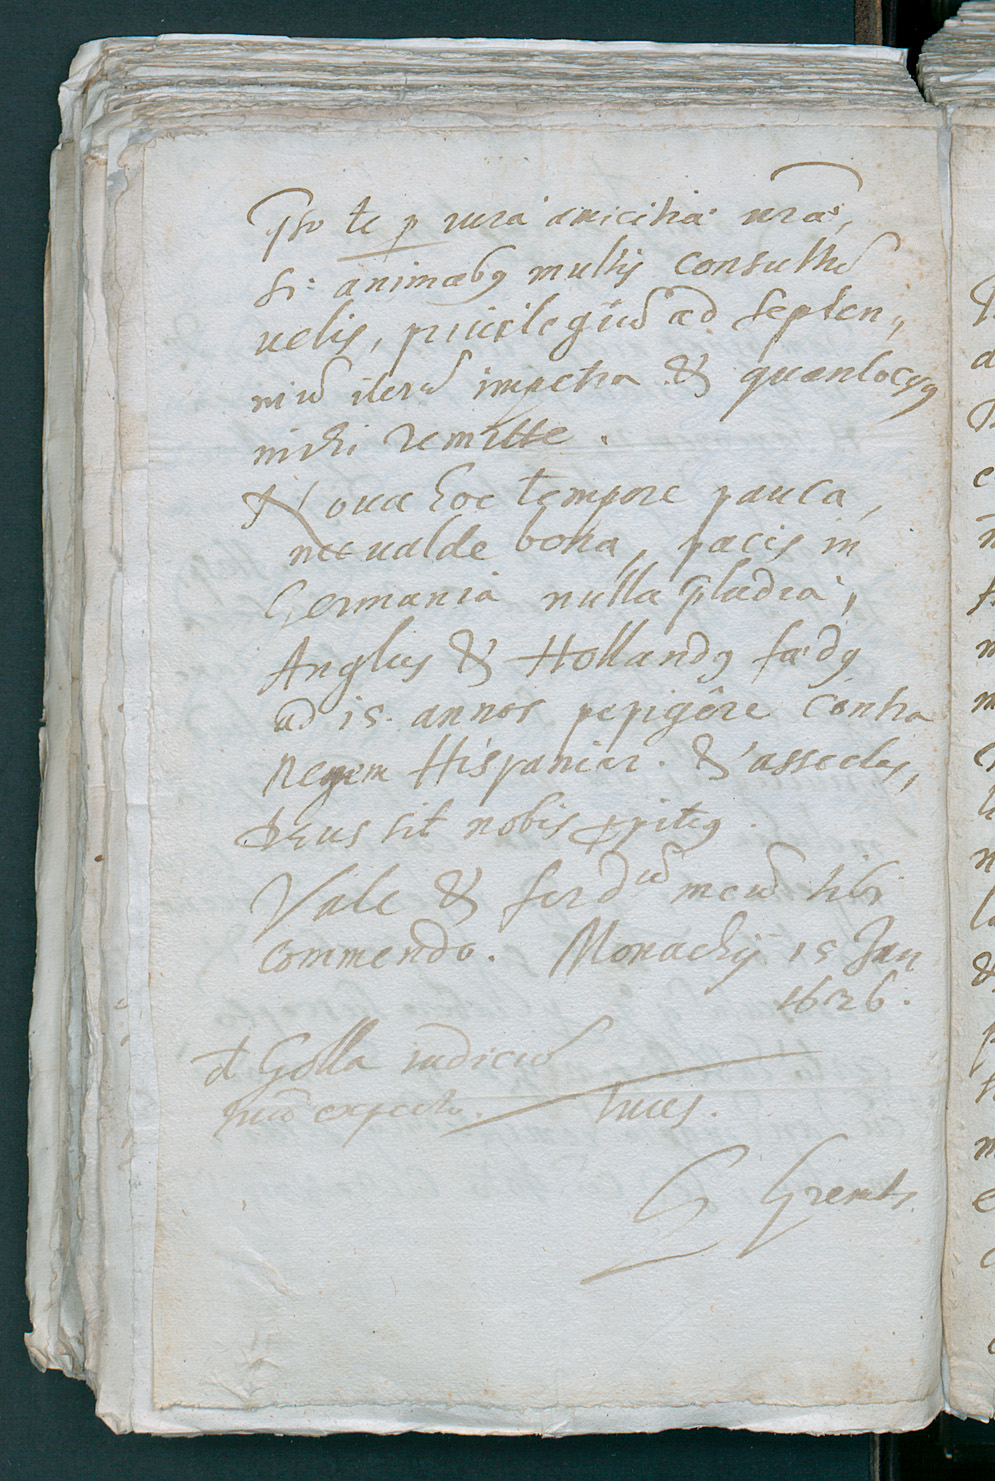 qso te p vera amicitia nrâ,
si animabꝯ multis consultũ
velis, privilegiũ ad septen„
niũ iterũ impetra & quantocyꝯ
mihi remitte.
Nova hoc tempore pauca,
nec valde bona, pacis in
Germania nulla
Anglus & Hollandꝯ fœdꝯ
ad 15. annos pepigêre contra
Regem Hispaniar. & asseclas,
Deus sit nobis ꝓpitiꝯ.
Vale & ferdũ meũ tibi
commendo. Monachij 15 Jan
1626.
d Golla iudiciũ
expecto. tuus.
G